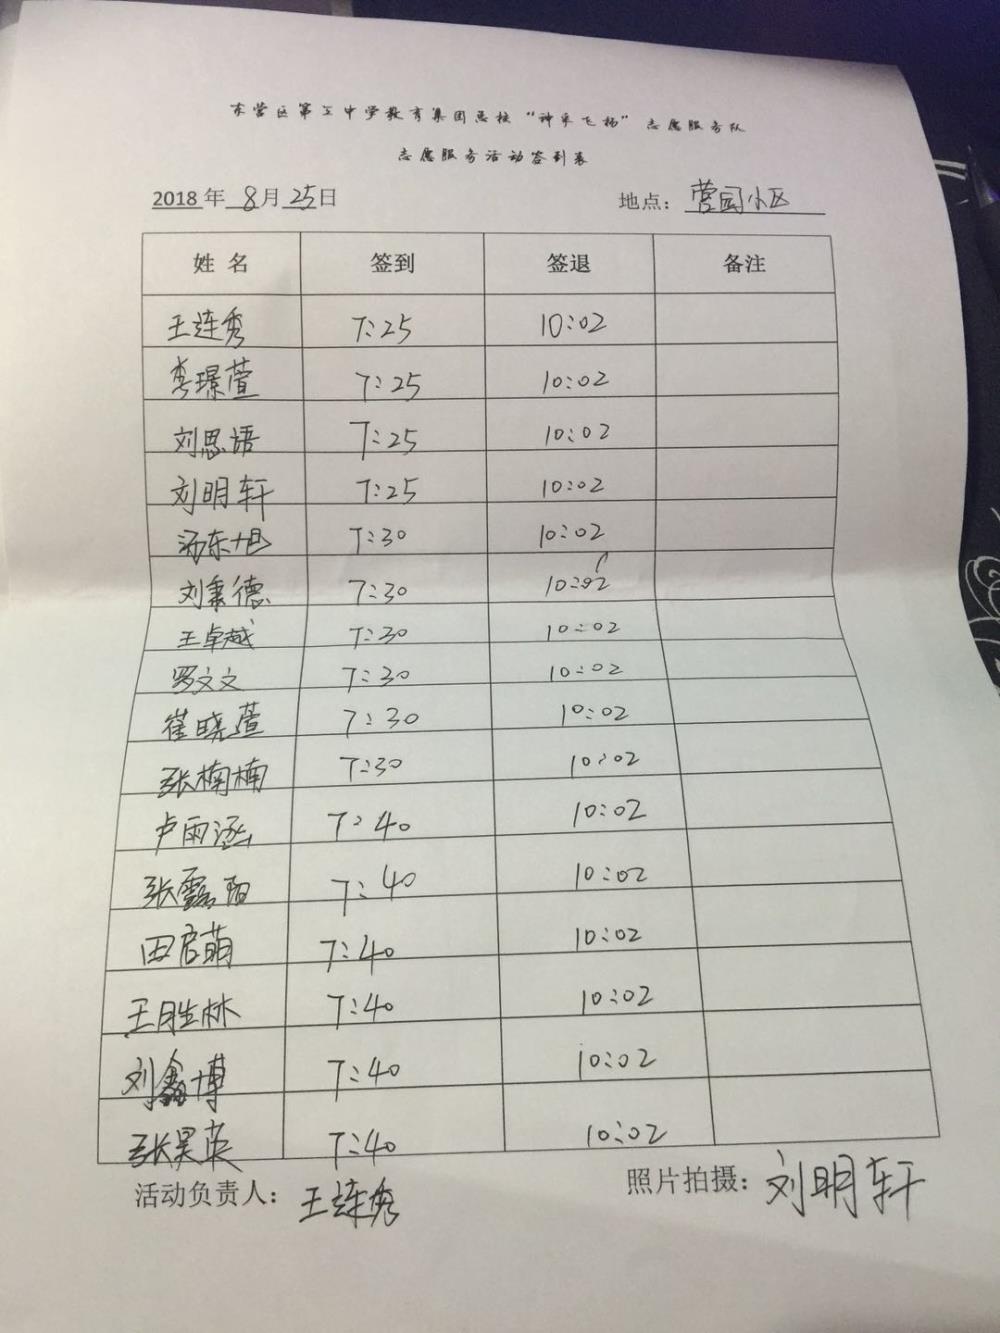 东营区第三中学教育集团总校“神采飞杨”志愿服务队
志愿服务活动签到表
2018年 8月 25日 地点：营园小区
姓名 签到 签退 备注
王连秀 7:25 10:02
李璟萱 7:25 10:02
刘思语 7:25 10:02
刘明轩 7:25 10:02
汤东旭 7:30 10:02
刘秉德 7:30 10:02
王卓越 7:30 10:02
罗文文 7:30 10:02
崔晓萱 7:30 10:02
张楠楠 7:30 10:02
卢雨涵 7:40 10:02
张露阳 7:40 10:02
田启萌 7:40 10:02
王胜林 7:40 10:02
刘鑫博 7:40 10:02
张昊英 7:40 10:02
活动负责人：王连秀 照片拍摄：刘明轩